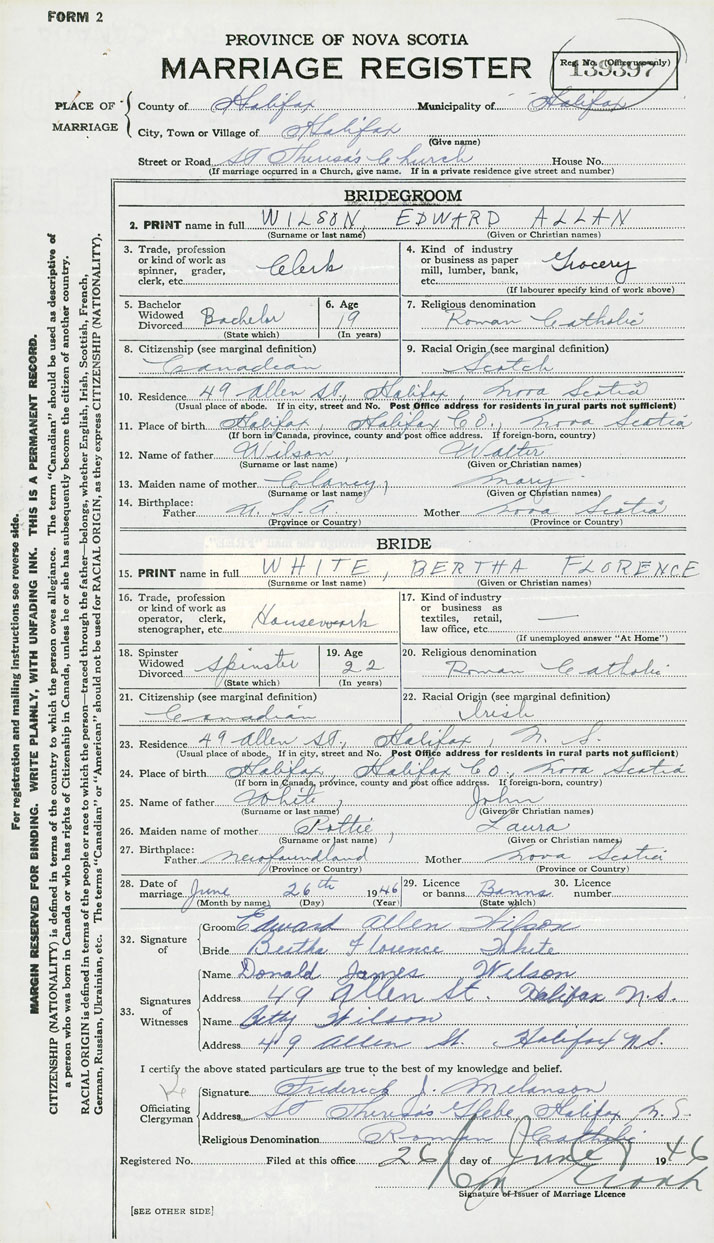 FORM 2
PROVINCE OF NOVA SCOTIA
MARRIAGE REGISTER
Regt. No. (Office use only)
139397
PLACE OF MARRIAGE
County of Halifax Municipality of Halifax
City, Town or Village of Halifax
(Give name)
Street or Road St Theresa's Church House No.
(If marriage occurred in a Church, give name. If in a private residence give street and number)
BRIDEGROOM
2. PRINT name in full WILSON, EDWARD ALLAN
(Surname or last name) (Given or Christian names)
3. Trade, profession or kind of work as spinner, grader, clerk, etc. Clerk
4. Kind of industry or business as paper mill, lumber, bank, etc. Grocery
(If labourer specify kind of work above)
5. Bachelor Widowed Divorced Bachelor
(State which)
6. Age 19
(In years)
7. Religious denomination
Roman Catholic
8. Citizenship (see marginal definition)
Canadian
9. Racial Origin (see marginal definition)
Scotch
10. Residence 49 Allen St, Halifax, Nova Scotia
(Usual place of abode. If in city, street and No. Post Office address for residents in rural parts not sufficient)
11. Place of birth Halifax, Halifax CO, Nova Scotia
(If born in Canada, province, county and post office address. If foreign-born, country)
12. Name of father Wilson, Walter
(Surname or last name) (Given or Christian names)
13. Maiden name of mother Clancy, Mary
(Surname or last name) (Given or Christian names)
14. Birthplace:
Father U. S. A. Mother Nova Scotia
(Province or Country) (Province or Country)
BRIDE
15. PRINT name in full WHITE, BERTHA FLORENCE
(Surname or last name) (Given or Christian names)
16. Trade, profession or kind of work as operator, clerk, stenographer, etc. Housework
17. Kind of industry or business as textiles, retail, law office, etc. —
(If unemployed answer "At Home")
18. Spinster Widowed Divorced Spinster
(State which)
19. Age 22
(In years)
20. Religious denomination
Roman Catholic
21. Citizenship (see marginal definition)
Canadian
22. Racial Origin (see marginal definition)
Irish
23. Residence 49 Allen St, Halifax, N. S.
(Usual place of abode. If in city, street and No. Post Office address for residents in rural parts not sufficient)
24. Place of birth Halifax, Halifax CO, Nova Scotia
(If born in Canada, province, county and post office address. If foreign-born, country)
25. Name of father White, John
(Surname or last name) (Given or Christian names)
26. Maiden name of mother Pottie, Laura
(Surname or last name) (Given or Christian names)
27. Birthplace:
Father Newfoundland Mother Nova Scotia
(Province or Country) (Province or Country)
28. Date of marriage June 26th 1946
(Month by name) (Day) (Year)
29. Licence or banns Banns
(State which)
30. Licence number
32. Signature of
Groom Edward Allen Wilson
Bride Bertha Florence White
33. Signatures of Witnesses
Name Donald James Wilson
Address 49 Allen St. Halifax N.S.
Name Betty Wilson
Address 49 Allen St. Halifax N.S.
I certify the above stated particulars are true to the best of my knowledge and belief.
Officiating Clergyman
Signature Frederick J. Melanson
Address St Theresa's Glebe Halifax N.S.
Religious Denomination Roman Catholic
Registered No. Filed at this office 26 day of June 1946
Signature of Issuer of Marriage Licence
[SEE OTHER SIDE]
For registration and mailing instructions see reverse side.
MARGIN RESERVED FOR BINDING. WRITE PLAINLY, WITH UNFADING INK. THIS IS A PERMANENT RECORD.
CITIZENSHIP (NATIONALITY) is defined in terms of the country to which the person owes allegiance. The term "Canadian" should be used as descriptive of
a person who was born in Canada or who has rights of Citizenship in Canada, unless he or she has subsequently become the citizen of another country.
RACIAL ORIGIN is defined in terms of the people or race to which the person—traced through the father—belongs, whether English, Irish, Scottish, French,
German, Russian, Ukrainian, etc. The terms "Canadian" or "American" should not be used for RACIAL ORIGIN, as they express CITIZENSHIP (NATIONALITY).